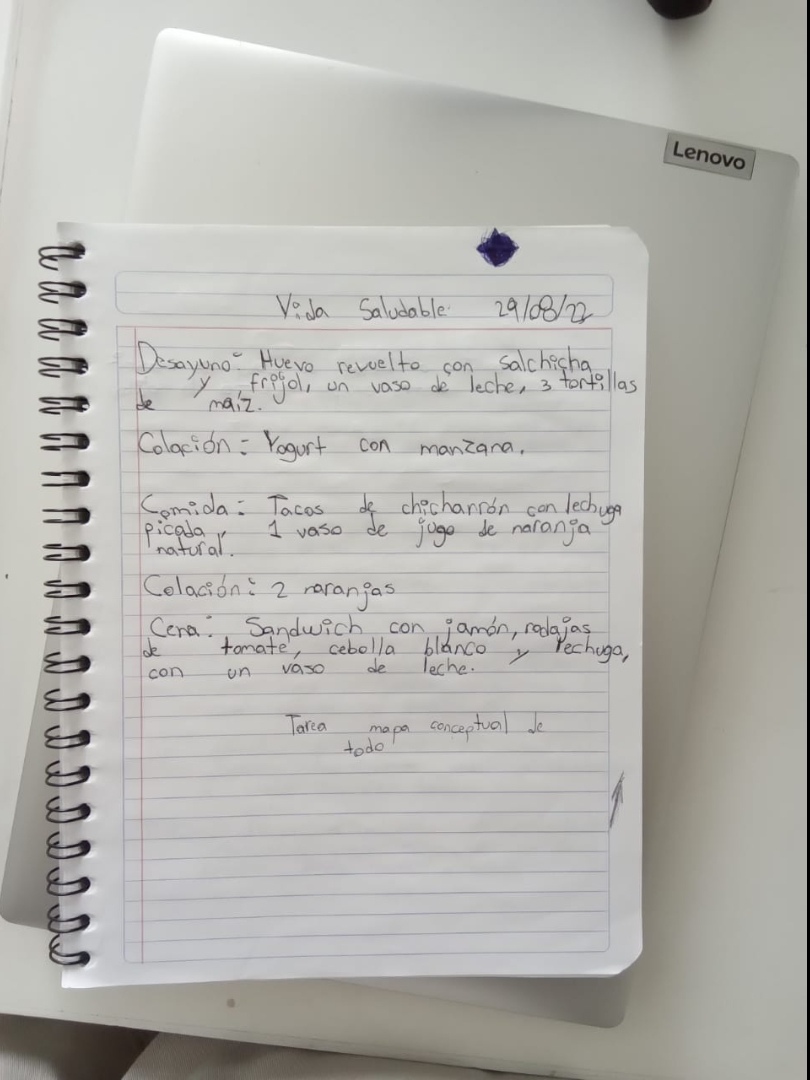 Lenovo
Vida Saludable 29/08/22
Desayuno- Huevo revuelto con salchicha
y frijol, un vaso de leche, 3 tortillas
de maíz.
Colación= Yogurt con manzana.
Comida= Tacos de chicharrón con lechuga
picada, 1 vaso de jugo de naranja
natural.
Colación: 2 naranjas
Cena: Sandwich con jamón, rodajas
de tomate, cebolla blanco y lechuga,
con un vaso de leche.
Tarea mapa conceptual de
todo